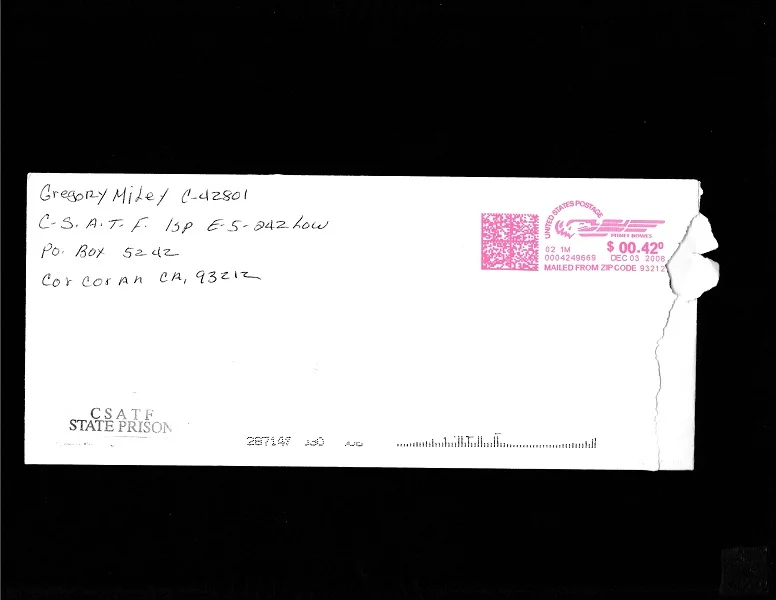 Gregory Miley C-42801
C-S. A.T. F. ISP E-5-242 Low
P.O. Box 5242
Corcoran CA, 93212
UNITED STATES POSTAGE
PITNEY BOWES
02 1M
$ 00.42⁰
0004249669
DEC 03 2008
MAILED FROM ZIP CODE 93212
CSATF
STATE PRISON